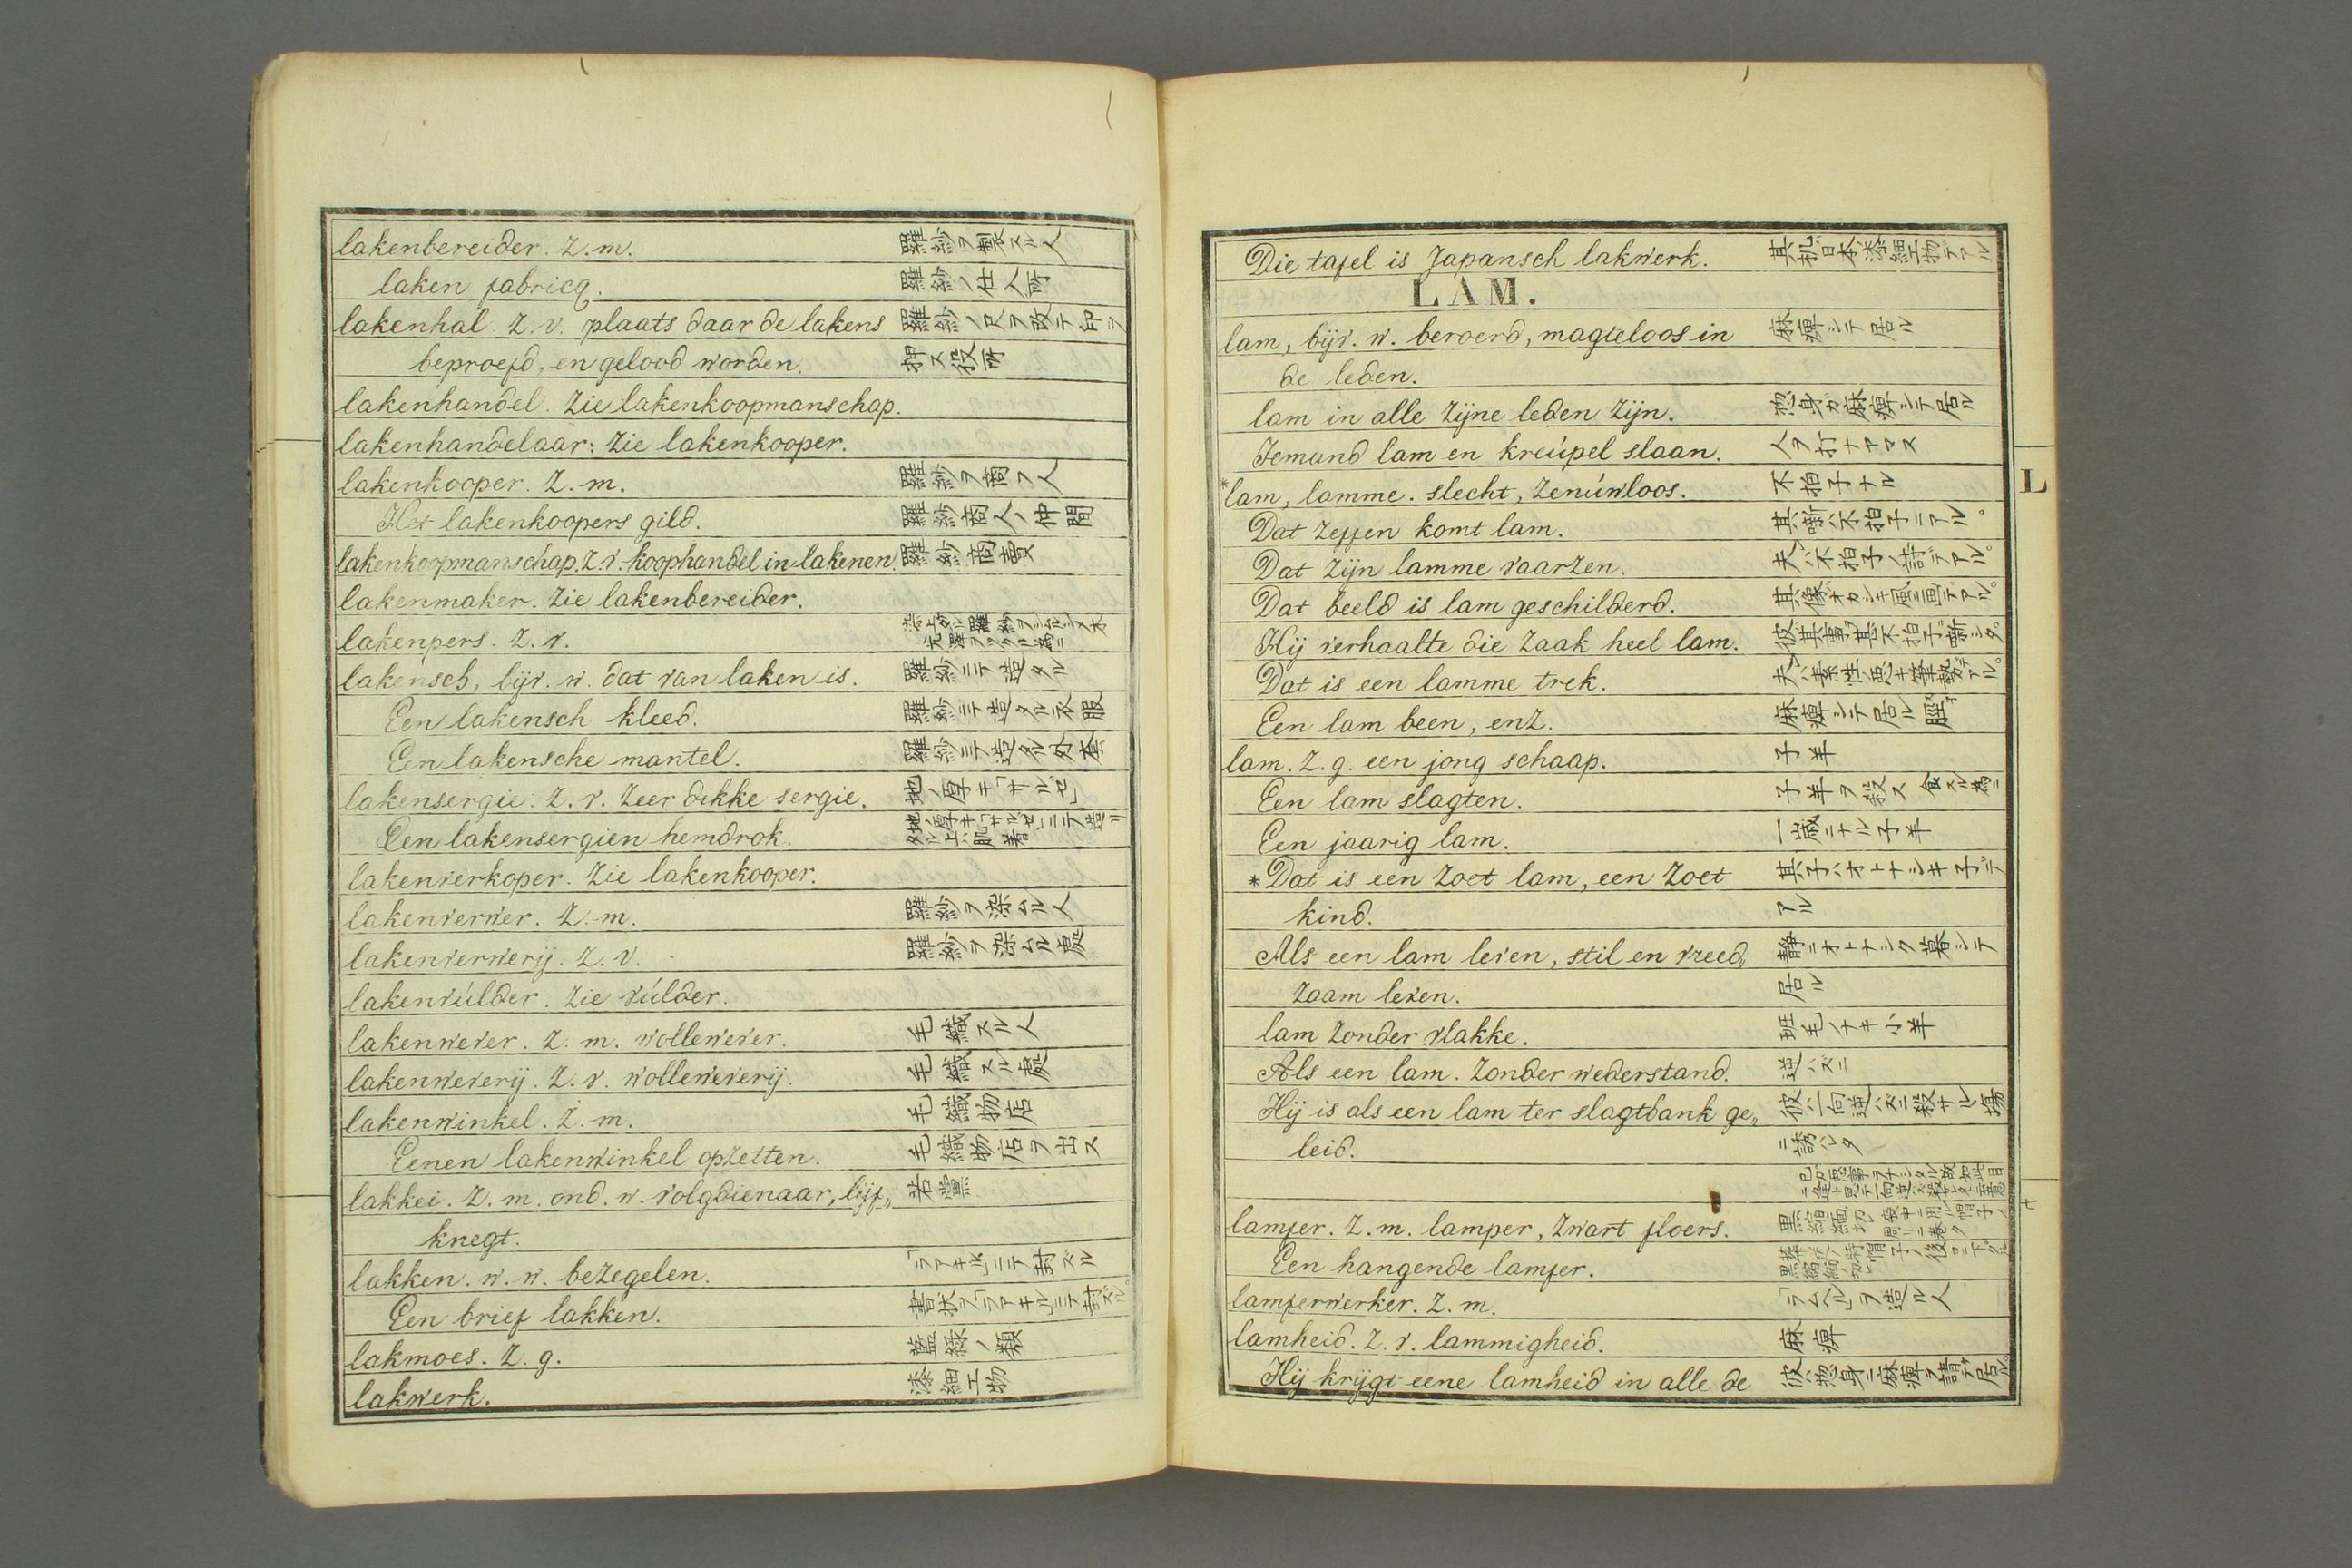 lakenbereider. Z. m. 羅紗ヲ製スル人
laken fabricq. 羅紗ノ仕入所
lakenhal. Z. v. plaats daar de lakens 羅紗ノ尺ヲ改テ印ヲ
beproefd, en gelood worden. 押ス役所
lakenhandel. Zie lakenkoopmanschap.
lakenhandelaar: Zie lakenkooper.
lakenkooper. Z. m. 羅紗ヲ商フ人
Het lakenkoopers gild. 羅紗商人ノ仲間
lakenkoopmanschap. Z. v. koophandel in lakenen. 羅紗商賣
lakenmaker. Zie lakenbereider.
lakenpers. Z. v.
lakensch, bijv. w. dat van laken is. 羅紗ニテ造タル
Een lakensch kleed. 羅紗ニテ造タル衣服
Een lakensche mantel. 羅紗ニテ造タル外套
lakensergie. Z. v. Zeer dikke sergie. 地ノ厚キ「サルゼ」
Een lakensergien hemdrok. 地ノ厚キ「サルゼ」ニテ造リタル上肌着
lakenverkoper. Zie lakenkooper.
lakenverwer. Z. m. 羅紗ヲ染ムル人
lakenverwerij. Z. v. 羅紗ヲ染ムル處
lakenvúlder. Zie vúlder.
lakenwever. Z. m. wollewever. 毛織スル人
lakenweverij. Z. v. wolleweverij. 毛織スル處
lakenwinkel. Z. m. 毛織物店
Eenen lakenwinkel opzetten. 毛織物店ヲ出ス
lakkei. Z. m. ond. w. volgdienaar, lijf„ 若黨
knegt.
lakken. w. w. bezegelen. 「ラアキル」ニテ封ズル
Een brief lakken. 書状ヲ「ラアキル」ニテ封ズル。
lakmoes. Z. g. 藍緑ノ類
lakwerk. 漆細工物
Die tafel is Japansch lakwerk. 其机ハ日本漆細工物デアル
LAM.
lam, bijv. w. beroerd, magteloos in 麻痺シテ居ル
de leden.
lam in alle zijne leden zijn. 惣身ガ麻痺シテ居ル
Iemand lam en kreúpel slaan. 人ヲ打ナヤマス
*lam, lamme. slecht, zenúwloos. 不拍子ナル
Dat zeggen komt lam. 其噺ハ不拍子ニアル。
Dat zijn lamme vaarzen. 夫ハ不拍子ノ詩デアル。
Dat beeld is lam geschilderd. 其像ハオカシキ風ニ画テアル。
Hij verhaalte die zaak heel lam. 彼ハ其事ヲ甚不拍子ニ噺シタ。
Dat is een lamme trek. 夫ハ素性悪キ筆勢デアル。
Een lam been, enz. 麻痺シテ居ル脛
lam. Z. g. een jong schaap. 子羊
Een lam slagten. 子羊ヲ殺ス 食スル為ニ
Een jaarig lam. 一歳ニナル子羊
*Dat is een zoet lam, een zoet 其子ハオトナシキ子デ
kind. アル
Als een lam leven, stil en vreed„ 静ニオトナシク暮シテ
zaam leven. 居ル
lam zonder vlakke. 班毛ノナキ小羊
Als een lam. zonder wederstand. 逆ハズニ
Hij is als een lam ter slagtbank ge„ 彼ハ一向逆ハズニ殺サル塲
leid. ニ誘ハレタ
lamfer. Z. m. lamper, zwart floers.
Een hangende lamfer.
lamferwerker. Z. m. 「ラムヘル」ヲ造ル人
lamheid. Z. v. lammigheid. 麻痺
Hij krijgt eene lamheid in alle de 彼ハ惣身ニ麻痺ヲ請テ居ル。
L